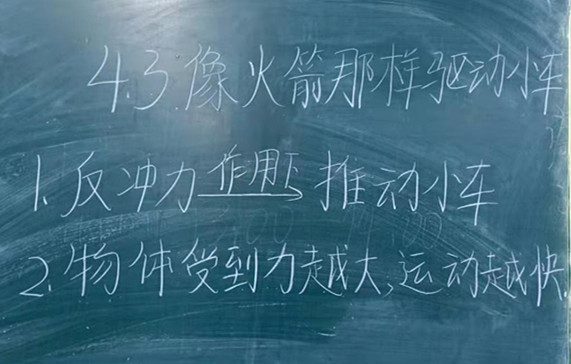 4.3.像火箭那样驱动小车
1.反冲力作用下推动小车
2.物体受到力越大,运动越快